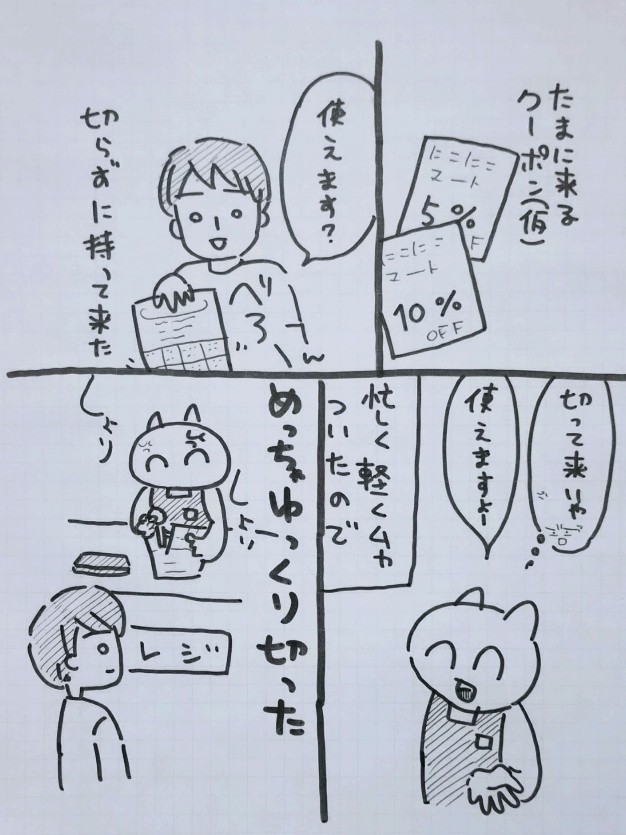 たまに来る
クーポン(仮)
にこにこ
マート
5%
F
にこにこ
マート
10%
OFF
使えます?
べろーん
切らずに持って来た
切って来いや
使えますよー
忙しく軽くムカ
ついたので
めっちゃゆっくり切った
しょり
しょい
レジ